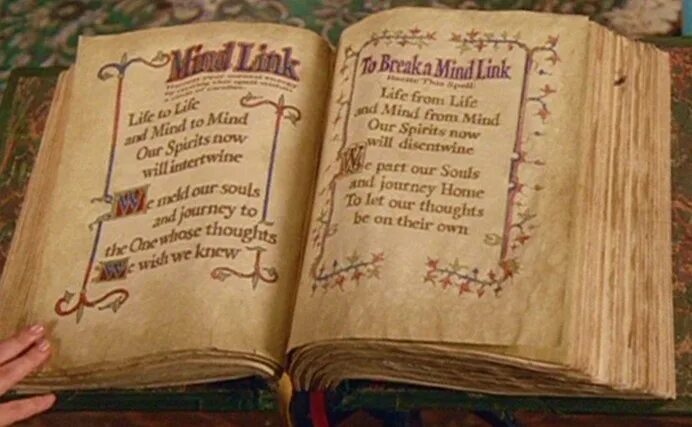 Mind Link
Life to Life
and Mind to Mind
Our Spirits now
will intertwine
We meld our souls
and journey to
the One whose thoughts
We wish we knew
To Break a Mind Link
Recite This Spell
Life from Life
and Mind from Mind
Our Spirits now
will disentwine
We part our Souls
and journey Home
To let our thoughts
be on their own